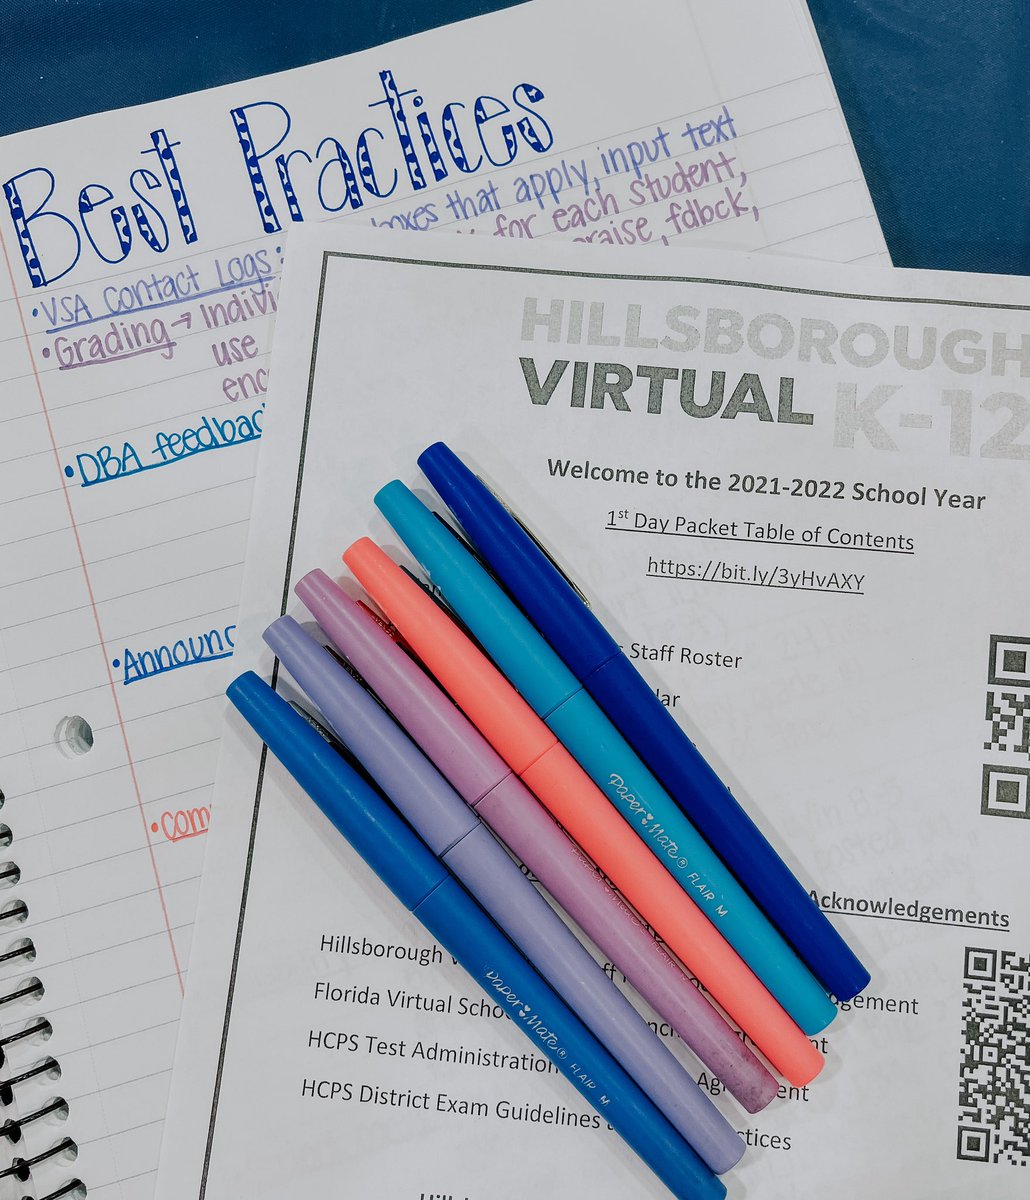 Best Practices
• VSA Contact Logs: boxes that apply, input text
• Grading → Indivi for each student,
use praise, fdbck,
enc
• DBA feedbac
• Announc
• com
HILLSBOROUGH
VIRTUAL K-12
Welcome to the 2021-2022 School Year
1st Day Packet Table of Contents
https://bit.ly/3yHvAXY
Staff Roster
Acknowledgements
Hillsborough
Florida Virtual Schoo
HCPS Test Administration
HCPS District Exam Guidelines
Paper Mate® FLAIR M
Paper Mate® FLAIR M
Paper Mate® FLAIR M